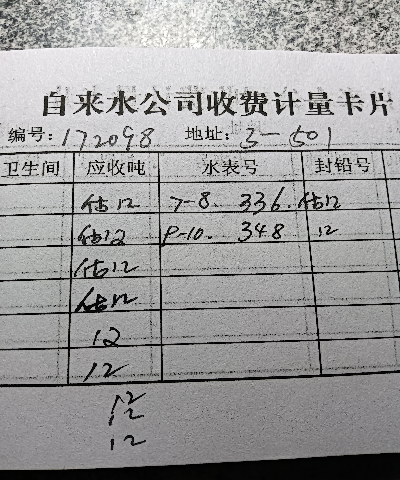 自来水公司收费计量卡片
编号: 172098 地址: 3-501
卫生间 应收吨 水表号 封铅号
估12 7-8. 336. 估12
估12 9-10. 348 12
估12
估12
12
12
12
12